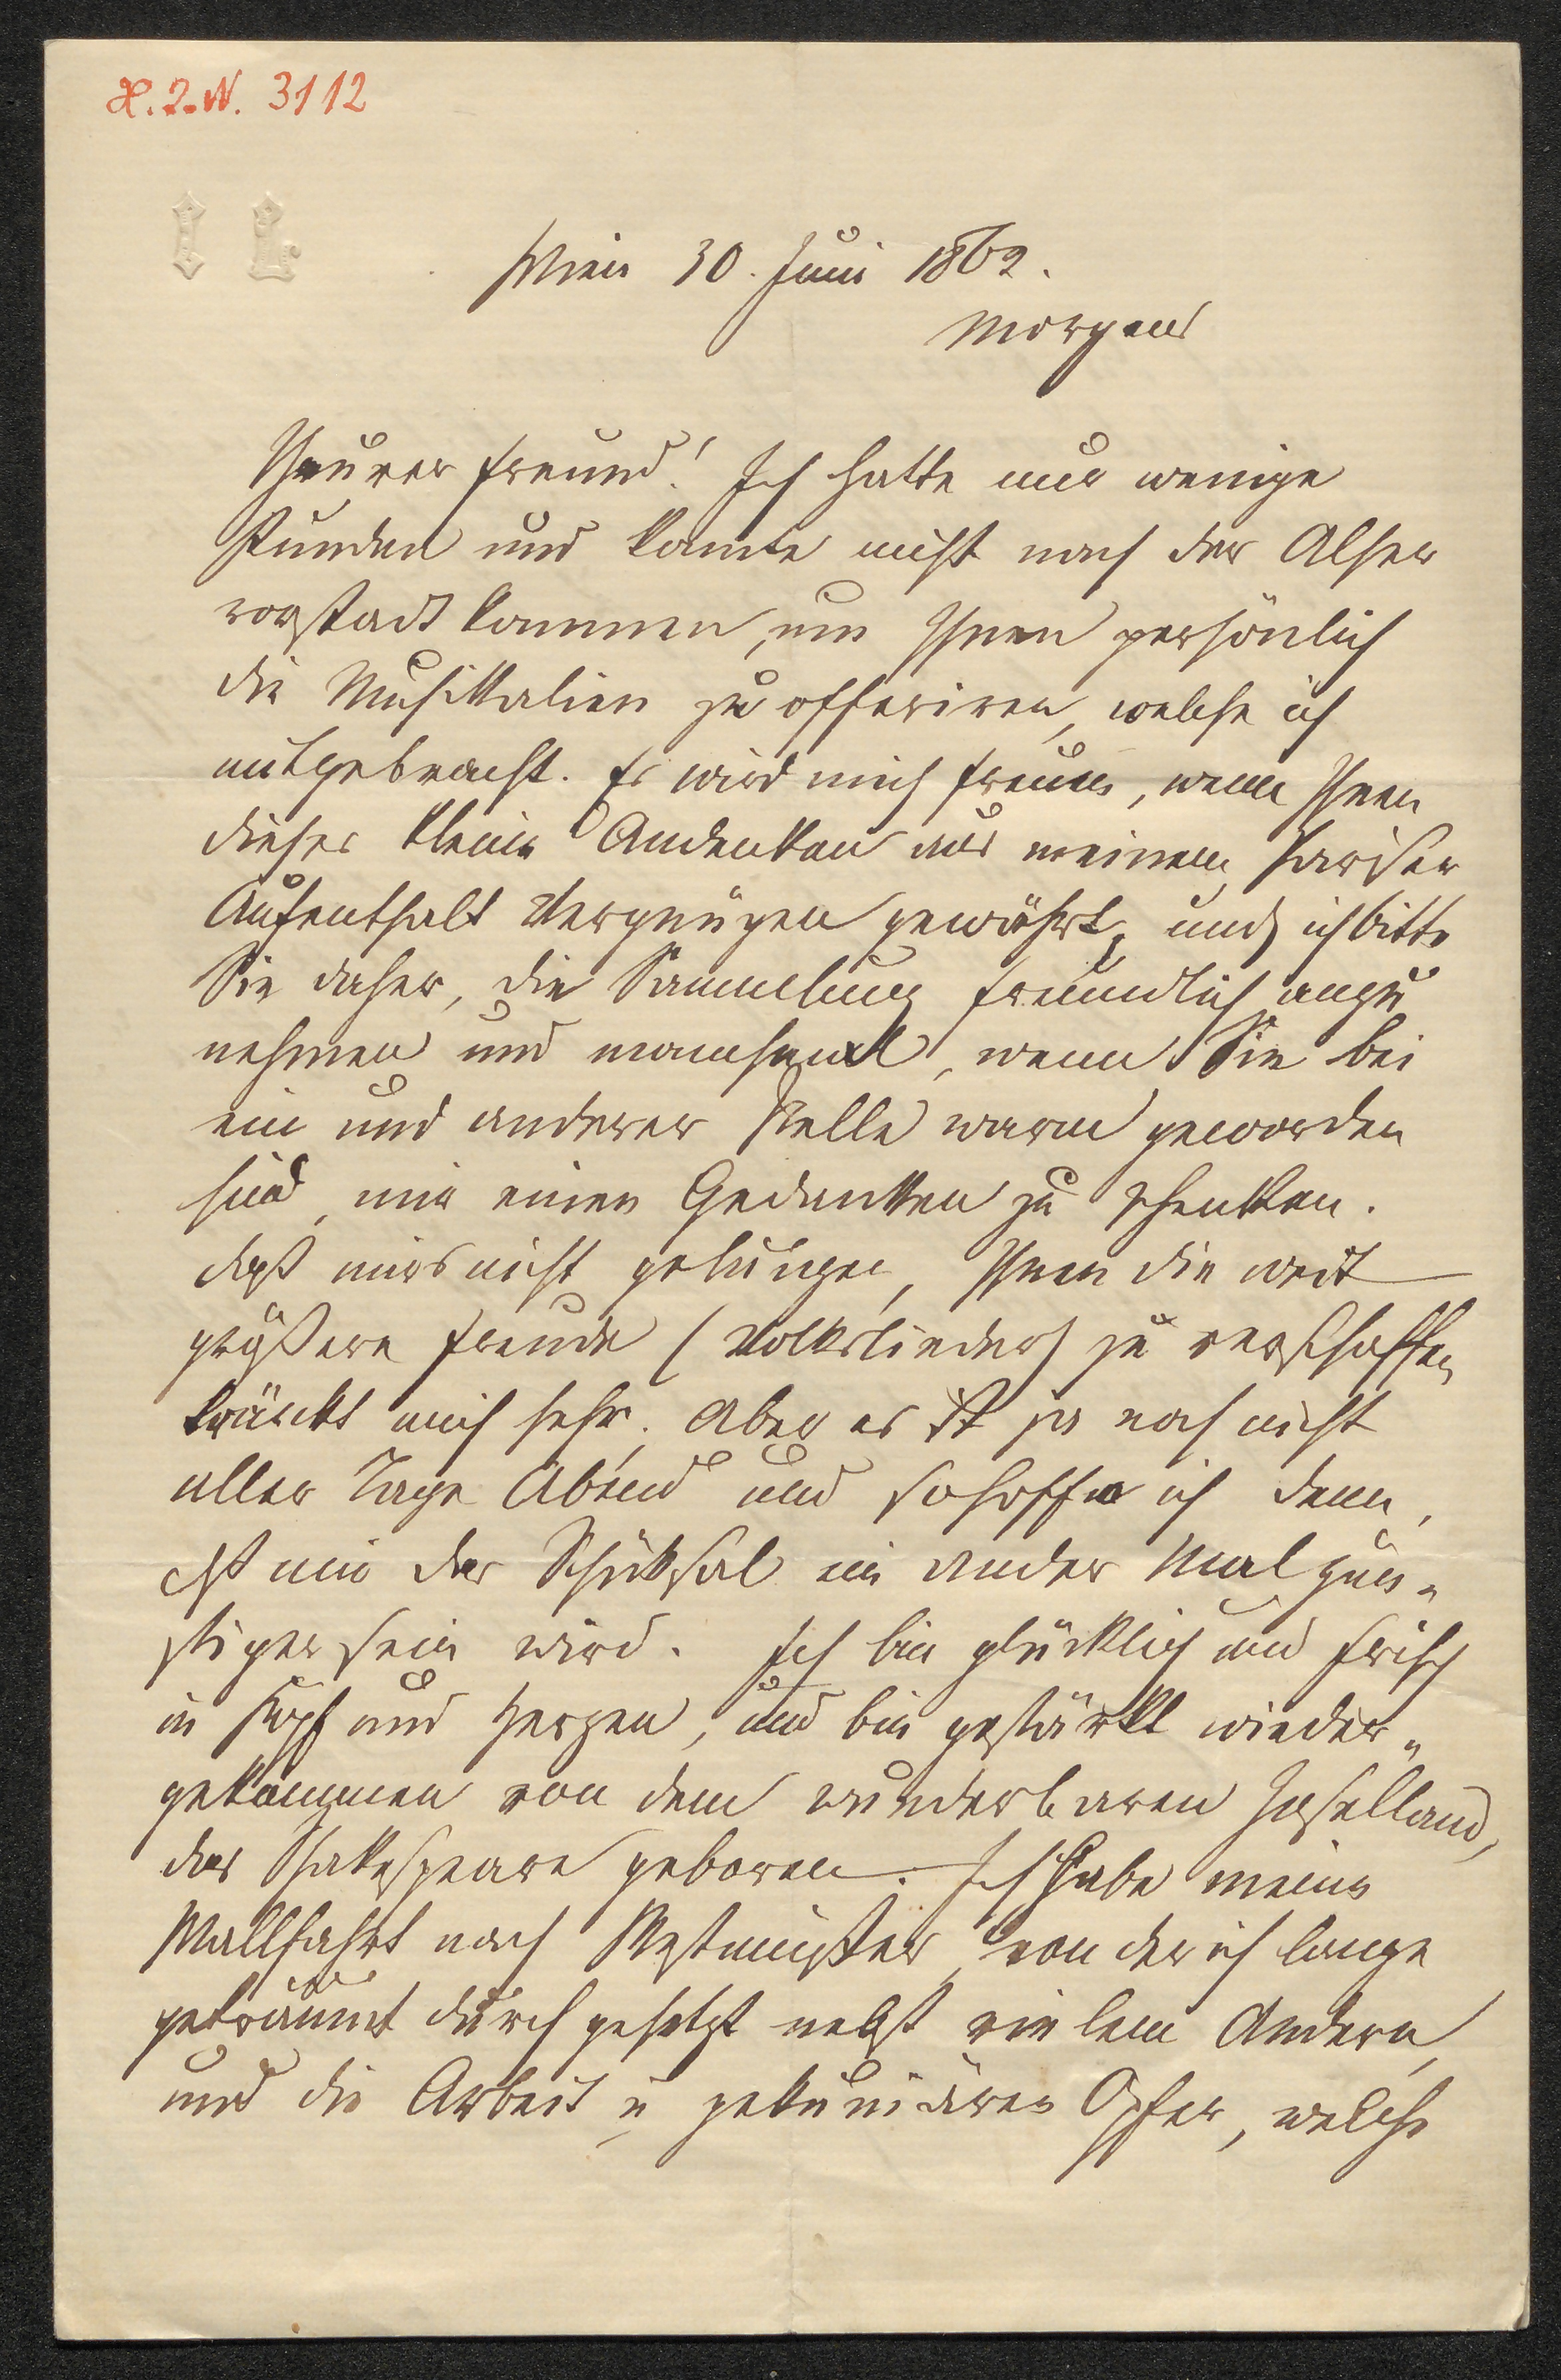 H. I. N. 3112
I L.
Wien 30. Juni 1862.
Morgens
Theurer Freund! Ich hatte nur wenige
Stunden und konnte nicht nach der Alser
vorstadt kommen, um Ihnen persönlich
die Musikalien zu offeriren, welche ich
mitgebracht. Es wird mich freuen, wenn Ihnen
dieses kleine Andenken aus meinem Pariser
Aufenthalt Vergnügen gewährt, und ich bitte
Sie daher, die Sammlung freundlich anzu
nehmen und manchmal, wenn Sie bei
ein und anderer Stelle warm geworden
sind, mir einen Gedanken zu schenken.
daß mirs nicht gelungen, Ihnen die weit
größere Freude (Volkslieder) zu verschaffen
kränkt mich sehr. Aber es ist ja noch nicht
aller Tage Abend und so hoffe ich denn,
daß mir das Schicksal ein ander Mal güns„
stiger sein wird. Ich bin glücklich und frisch
in Kopf und Herzen, und bin gestärkt wieder„
gekommen von dem wunderbaren Inselland,
das Shakespeare geboren. Ich habe meine
Wallfahrt nach Westminster, von der ich lange
geträumt durchgesetzt nebst vielem Andern,
und die Arbeit u pekuniären Opfer, welche